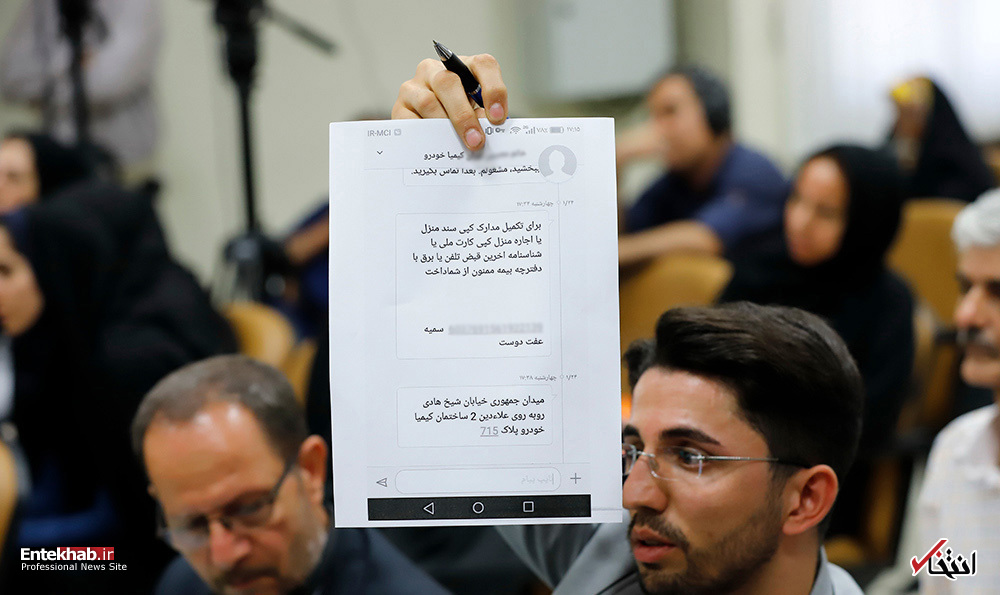 IR-MCI
۱۷:۱۵
کیمیا خودرو
ببخشید، مشغولم. بعدا تماس بگیرید.
۱/۲۴ چهارشنبه ۱۷:۲۴
برای تکمیل مدارک کپی سند منزل
یا اجاره منزل کپی کارت ملی یا
شناسنامه اخرین قبض تلفن یا برق با
دفترچه بیمه ممنون از شماداخت
سمیه
عفت دوست
۱/۲۴ چهارشنبه ۱۷:۳۸
میدان جمهوری خیابان شیخ هادی
روبه روی علاءدین 2 ساختمان کیمیا
خودرو پلاک 715
تایپ پیام
Entekhab.ir
Professional News Site
انتخاب